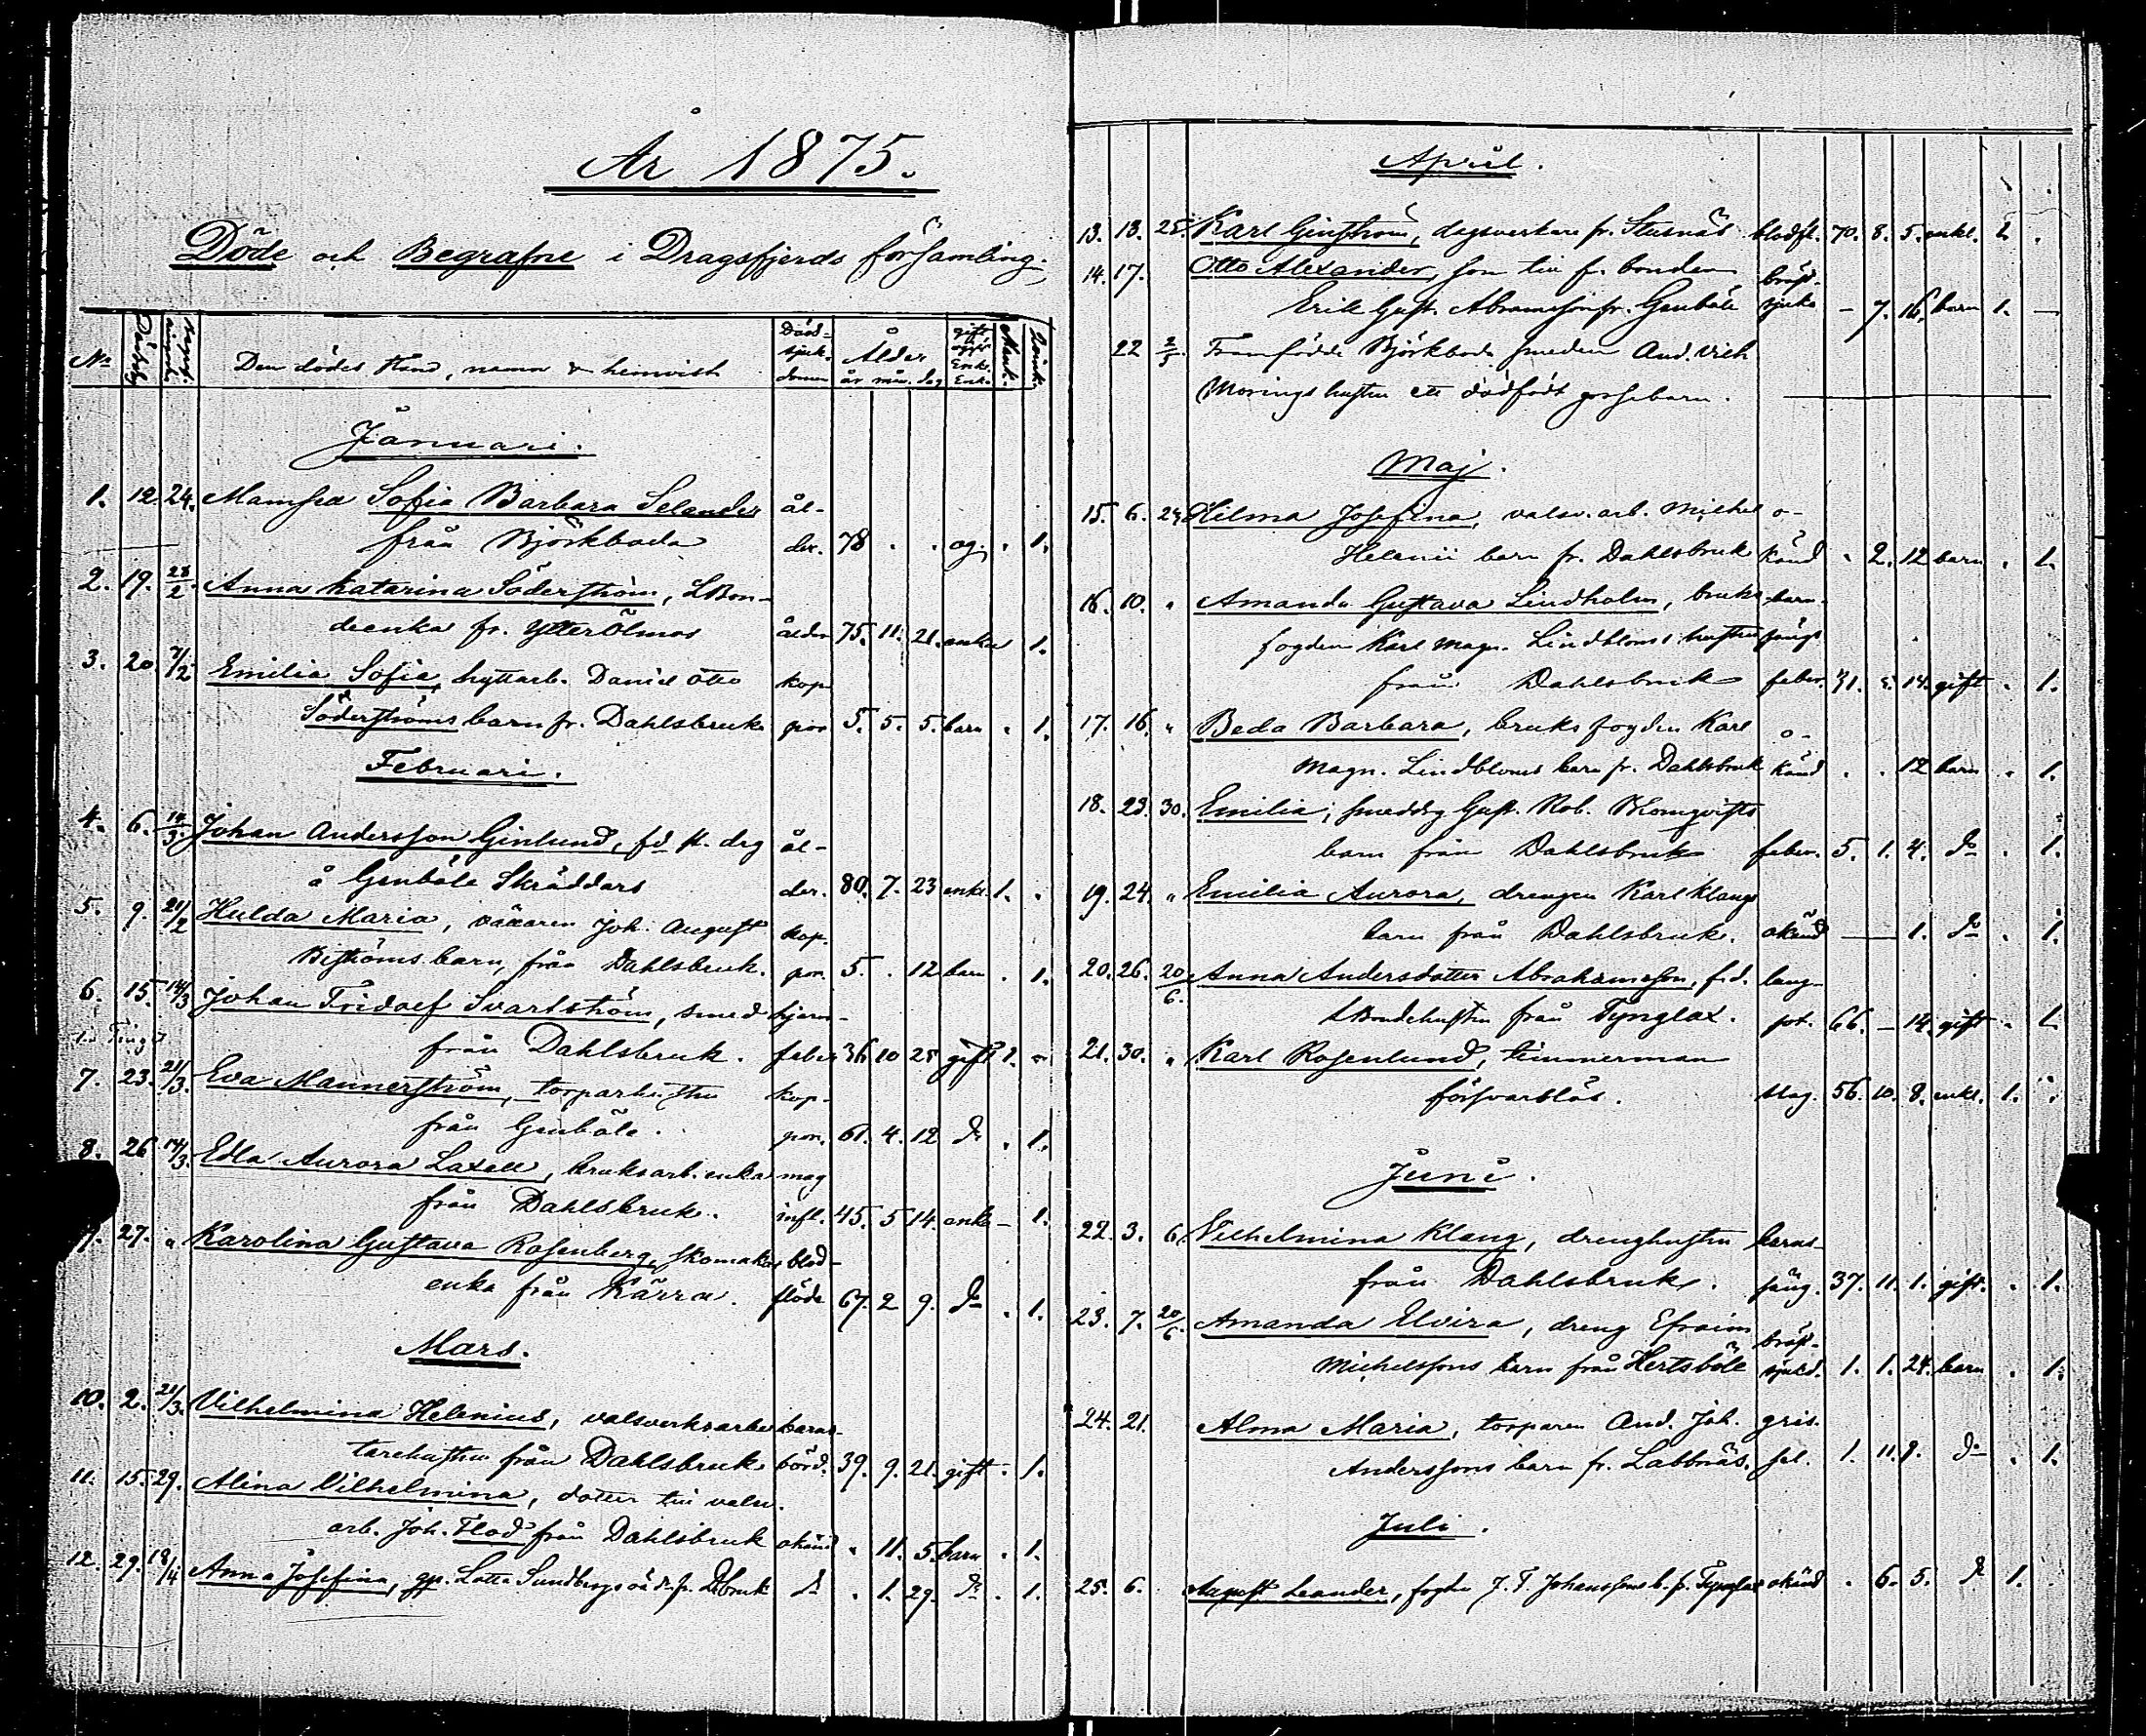 År 1875.
Döde och Begrafne i Dragsfjerds församling.
No Dödsdag Begrafningsdag Den dödes stånd, namn & hemvist Dödssjukdomen Ålder år mån. dag gift ogift Enkl. Enka Mank. Qvink.
Januari.
1. 12. 24. Mamsell Sofia Barbara Selander ål-
från Björkboda der. 78 . . og. . 1.
2. 19. 28/2. Anna Katarina Söderström, LBon-
deenka fr. YtterÖlmos ålder 75. 11. 21. enka 1.
3. 20. 7/2 Emilia Sofia, hyttarb. Daniel Otto kop
Söderströms barn fr. Dahlsbruk por 5. 5. 5. barn . 1.
Februari.
4. 6. 14/3. Johan Andersson Ginlund, fd st. drg ål-
å Genböle Skräddars der. 80. 7. 23 enkl. 1. .
5. 9. 21/2 Hulda Maria, väkaren Joh. August kop.
Biströms barn, från Dahlsbruk. por. 5. . 12 barn . 1.
6. 15. 14/3 Johan Fridolf Svartström, smed hjern-
från Dahlsbruk. feber 36 10 25 gift 1. -
7. 23. 21/3. Eva Mannerström, torparhustru kop-
från Genböle. por. 61. 4. 12 do . 1.
8. 26 14/3. Edla Aurora Laxell, bruksarb. enka mag
från Dahlsbruk. infl. 45. 5 14. enka - 1.
9. 27. " Karolina Gustava Rosenberg, skomakar blod-
enka från Kärra. flöde 67. 2 9. do . 1.
Mars.
10. 2. 21/3. Vilhelmina Helenius, valsverksarbe- barns-
tarehustru från Dahlsbruk börd. 39. 9. 21. gift . 1.
11. 15. 29. Alina Vilhelmina, dotter till valsv.
arb. Joh. Flod från Dahlsbruk okänd . 11. 5. barn . 1.
12. 29. 18/4 Anna Josefina, gp. Lotta Sundbergs oä dr. fr. Dbruk do . 1. 29. do . 1.
April.
13. 13. 25. Karl Ginström, dagsverkare fr. Stusnäs blodfl. 70. 8. 5. enkl. 1. .
14. 17. Otto Alexander, son till fr. bonden bröst-
Erik Gust. Abramsson fr. Genböle sjuka - 7. 16. barn 1. -
22 2/5. Framfödde Björkboda smeden And. Vilh
Morings hustru ett dödfödt gossebarn.
Maj.
15. 6. 24. Hilma Josefina, valsv. arb. Michel o-
Helenii barn fr. Dahlsbruk känd . 2. 12 barn . 1.
16. 10. " Amanda Gustava Lindholm, bruks- barn-
fogden Karl Magn. Lindbloms hustru sängs
från Dahlsbruk feber. 31. 14. gift . 1.
17. 16. " Beda Barbara, bruksfogden Karl o-
Magn. Lindbloms barn fr. Dahlsbruk känd . . 12 barn . 1.
18. 23. 30. Emilia, smeddrg Gust. Rob. Blomqvists
barn från Dahlsbruk feber. 5. 1. 4. do . 1.
19. 24. " Emilia Aurora, drengen Karl Klangs
barn från Dahlsbruk. okänd — 1. do . 1.
20. 26. 20/6. Anna Andersdotter Abrahamsson, f.d. lung-
LBondehustru från Tynglax. sot. 66. - 14. gift . 1.
21. 30. " Karl Rosenlund, timmerman
försvarslös. slag. 56. 10. 8. enkl. 1. .
Juni.
22. 3. 6. Vilhelmina Klang, drenghustru barns-
från Dahlsbruk. säng. 37. 11. 1. gift. . 1.
23. 7. 20/6. Amanda Elvira, dreng Efraim bröst-
Michelssons barn från Hertsböle sjukd. 1. 1. 24. barn . 1.
24. 21. Alma Maria, torparen And. Joh.
Anderssons barn fr. Labbnäs. 1. 11. 9. do . 1.
Juli.
25. 6. August Leander, fogden J. F. Johanssons b. fr. Tynglax okänd . 6. 5. do 1.